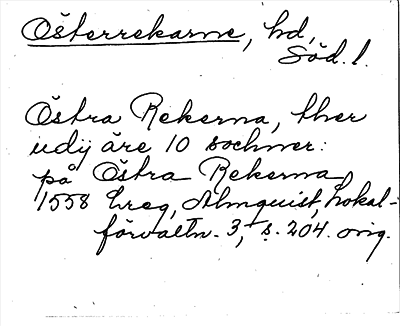 Österrekarne, hd,
Söd. l.
Östra Rekerna, ther
udij äre 10 sochner:
på Östra Rekerna
1558 Ereg, Almquist, Lokal-
förvaltn. 3, s. 204. orig.